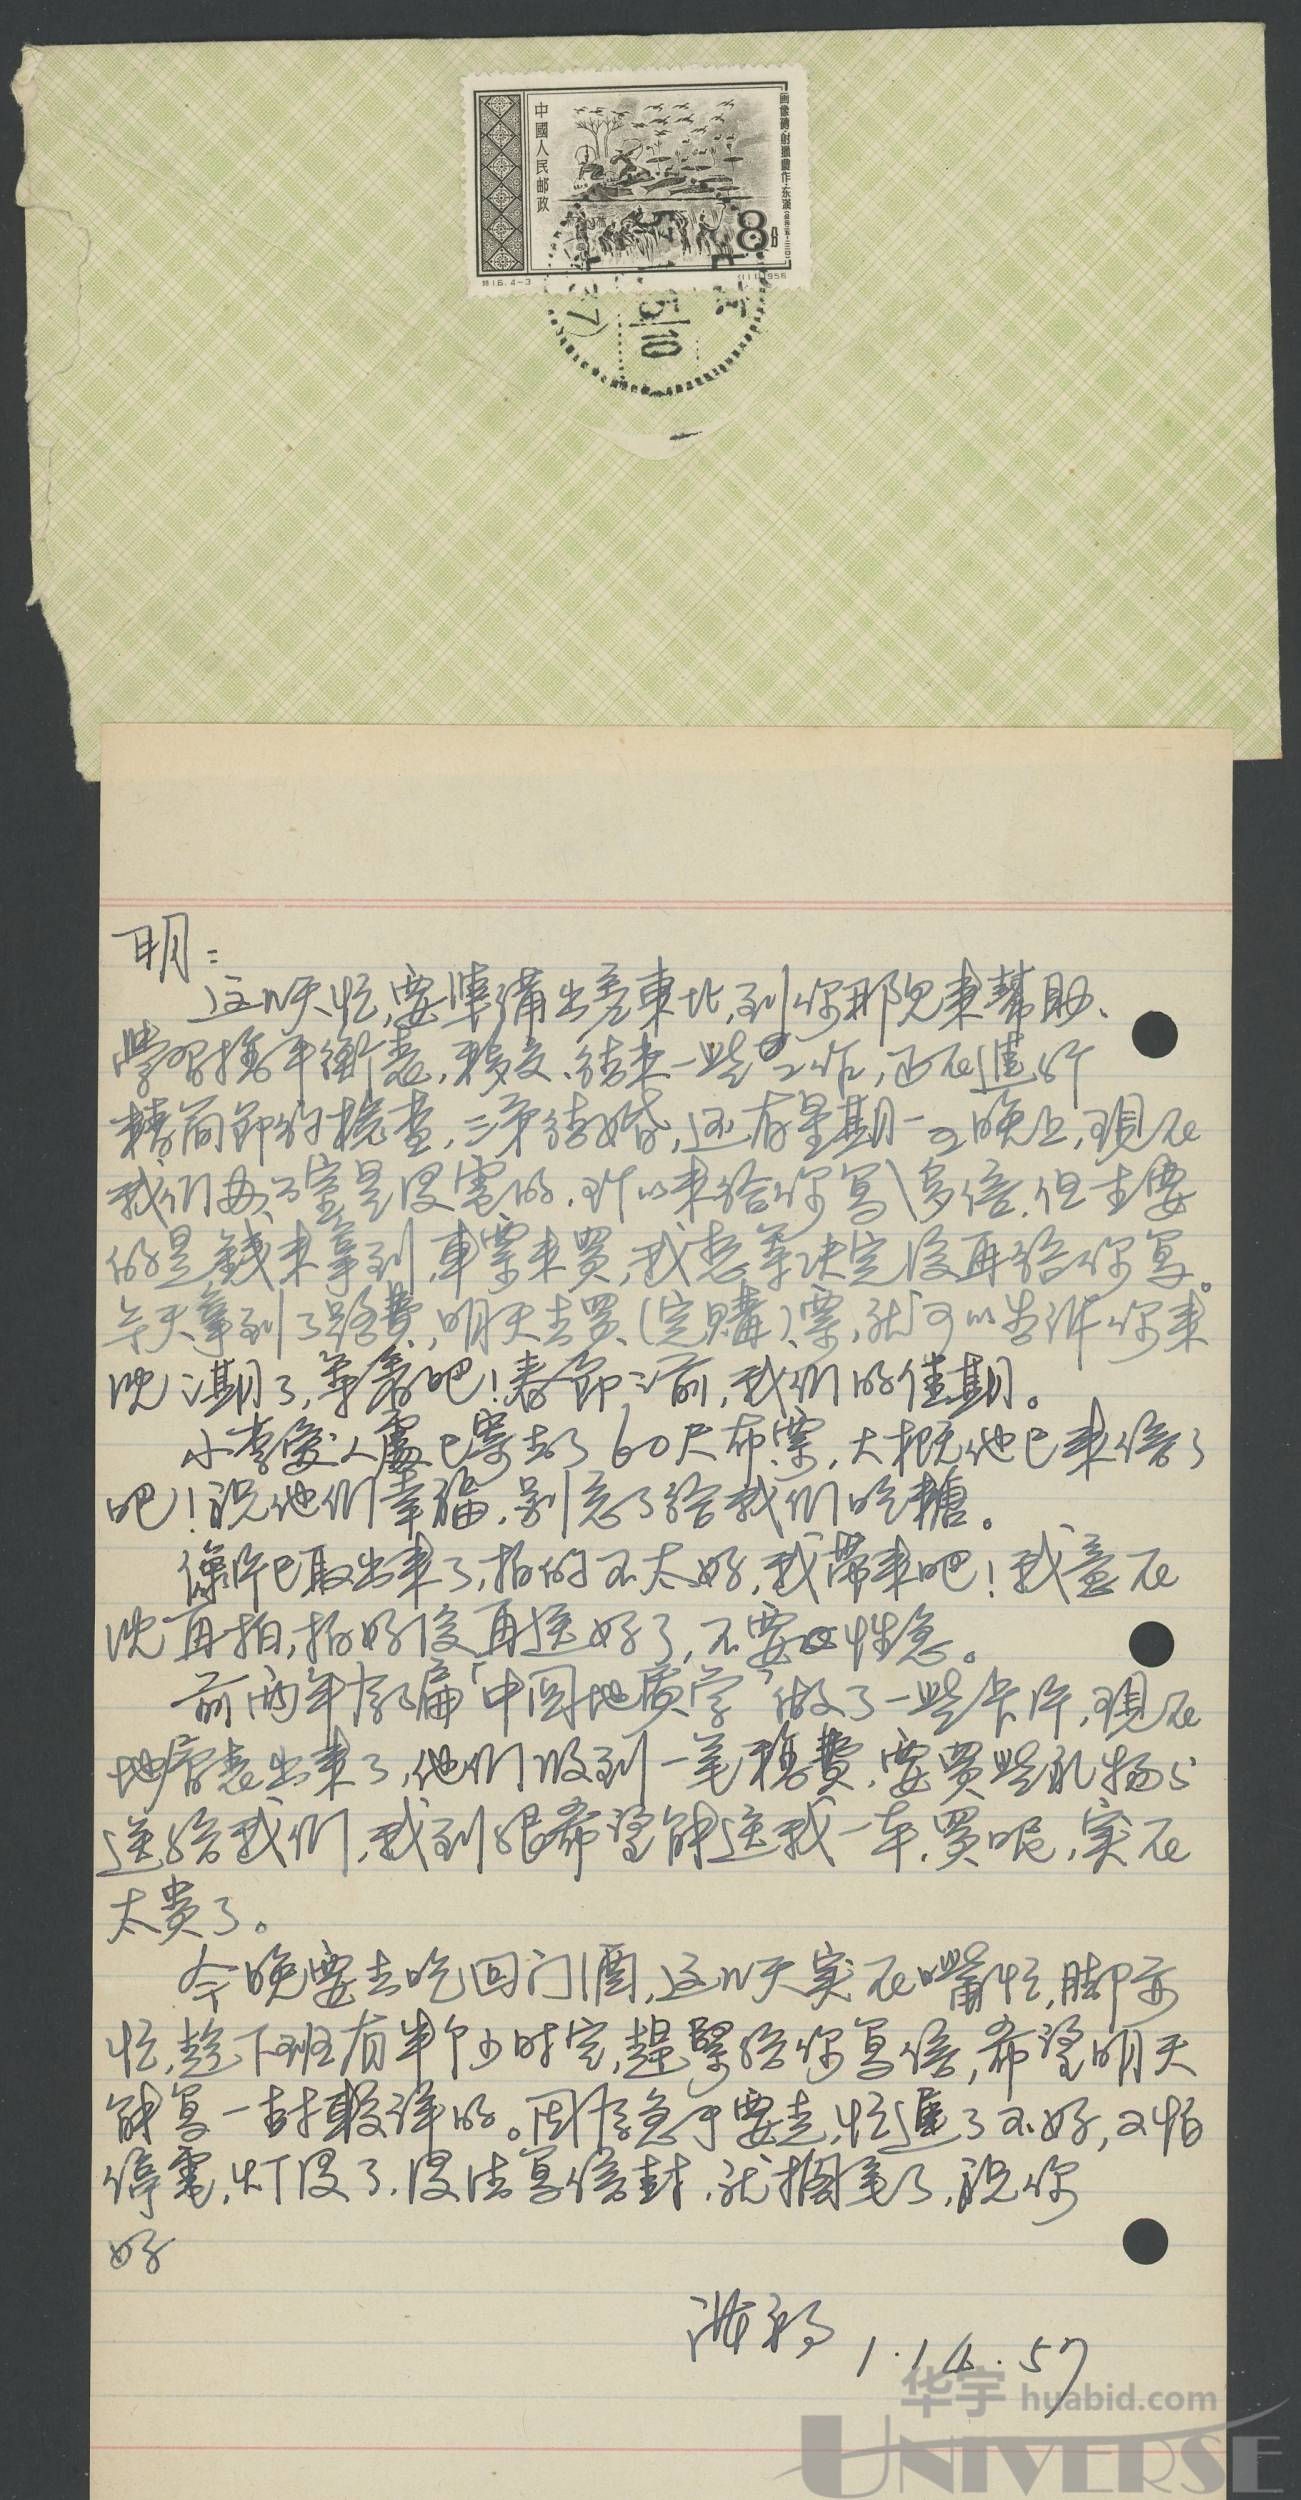 中國人民邮政
画像磚射獵農作·东漢
8分
特16.4-3
(111)1956
10
明：
这几天忙，要準備出差東北，到你那兒来幫助、
學習搞平衡表，移交、結束一些工作，还在進行
精簡節約檢查，三弟結婚，还有星期一、二晚上，現在
我們办公室是没電的，所以未給你写多信，但主要
的是錢未拿到，車票未買，我想等决定後再給你寫。
今天拿到了路費，明天去買（定購）票，就可以告訴你来
沈之期了，等着吧！春節之前，我們的佳期。
小李爱人處已寄去了60尺布票，大概他已来信了
吧！祝他們幸福，别忘了給我們吃糖。
像片已取出来了，拍的不太好，我帶来吧！我意在
沈再拍，拍好後再送好了，不要性急。
前兩年参加編「中国地质学」做了一些卡片，現在
他們收到一笔稿費，要買些礼物
送給我們，我到很希望能送我一车，買呢，实在
太贵了。
今晚要去吃回门酒，这几天实在嘴忙，脚亦
忙，趁下班有半个小时空，趕緊給你写信，希望明天
能写一封較详的。因急于要走，忙遲了不好，又怕
停電，灯没了，没法写信封，就擱笔了，祝你
好
1.14.57
华宇 huabid.com
UNIVERSE